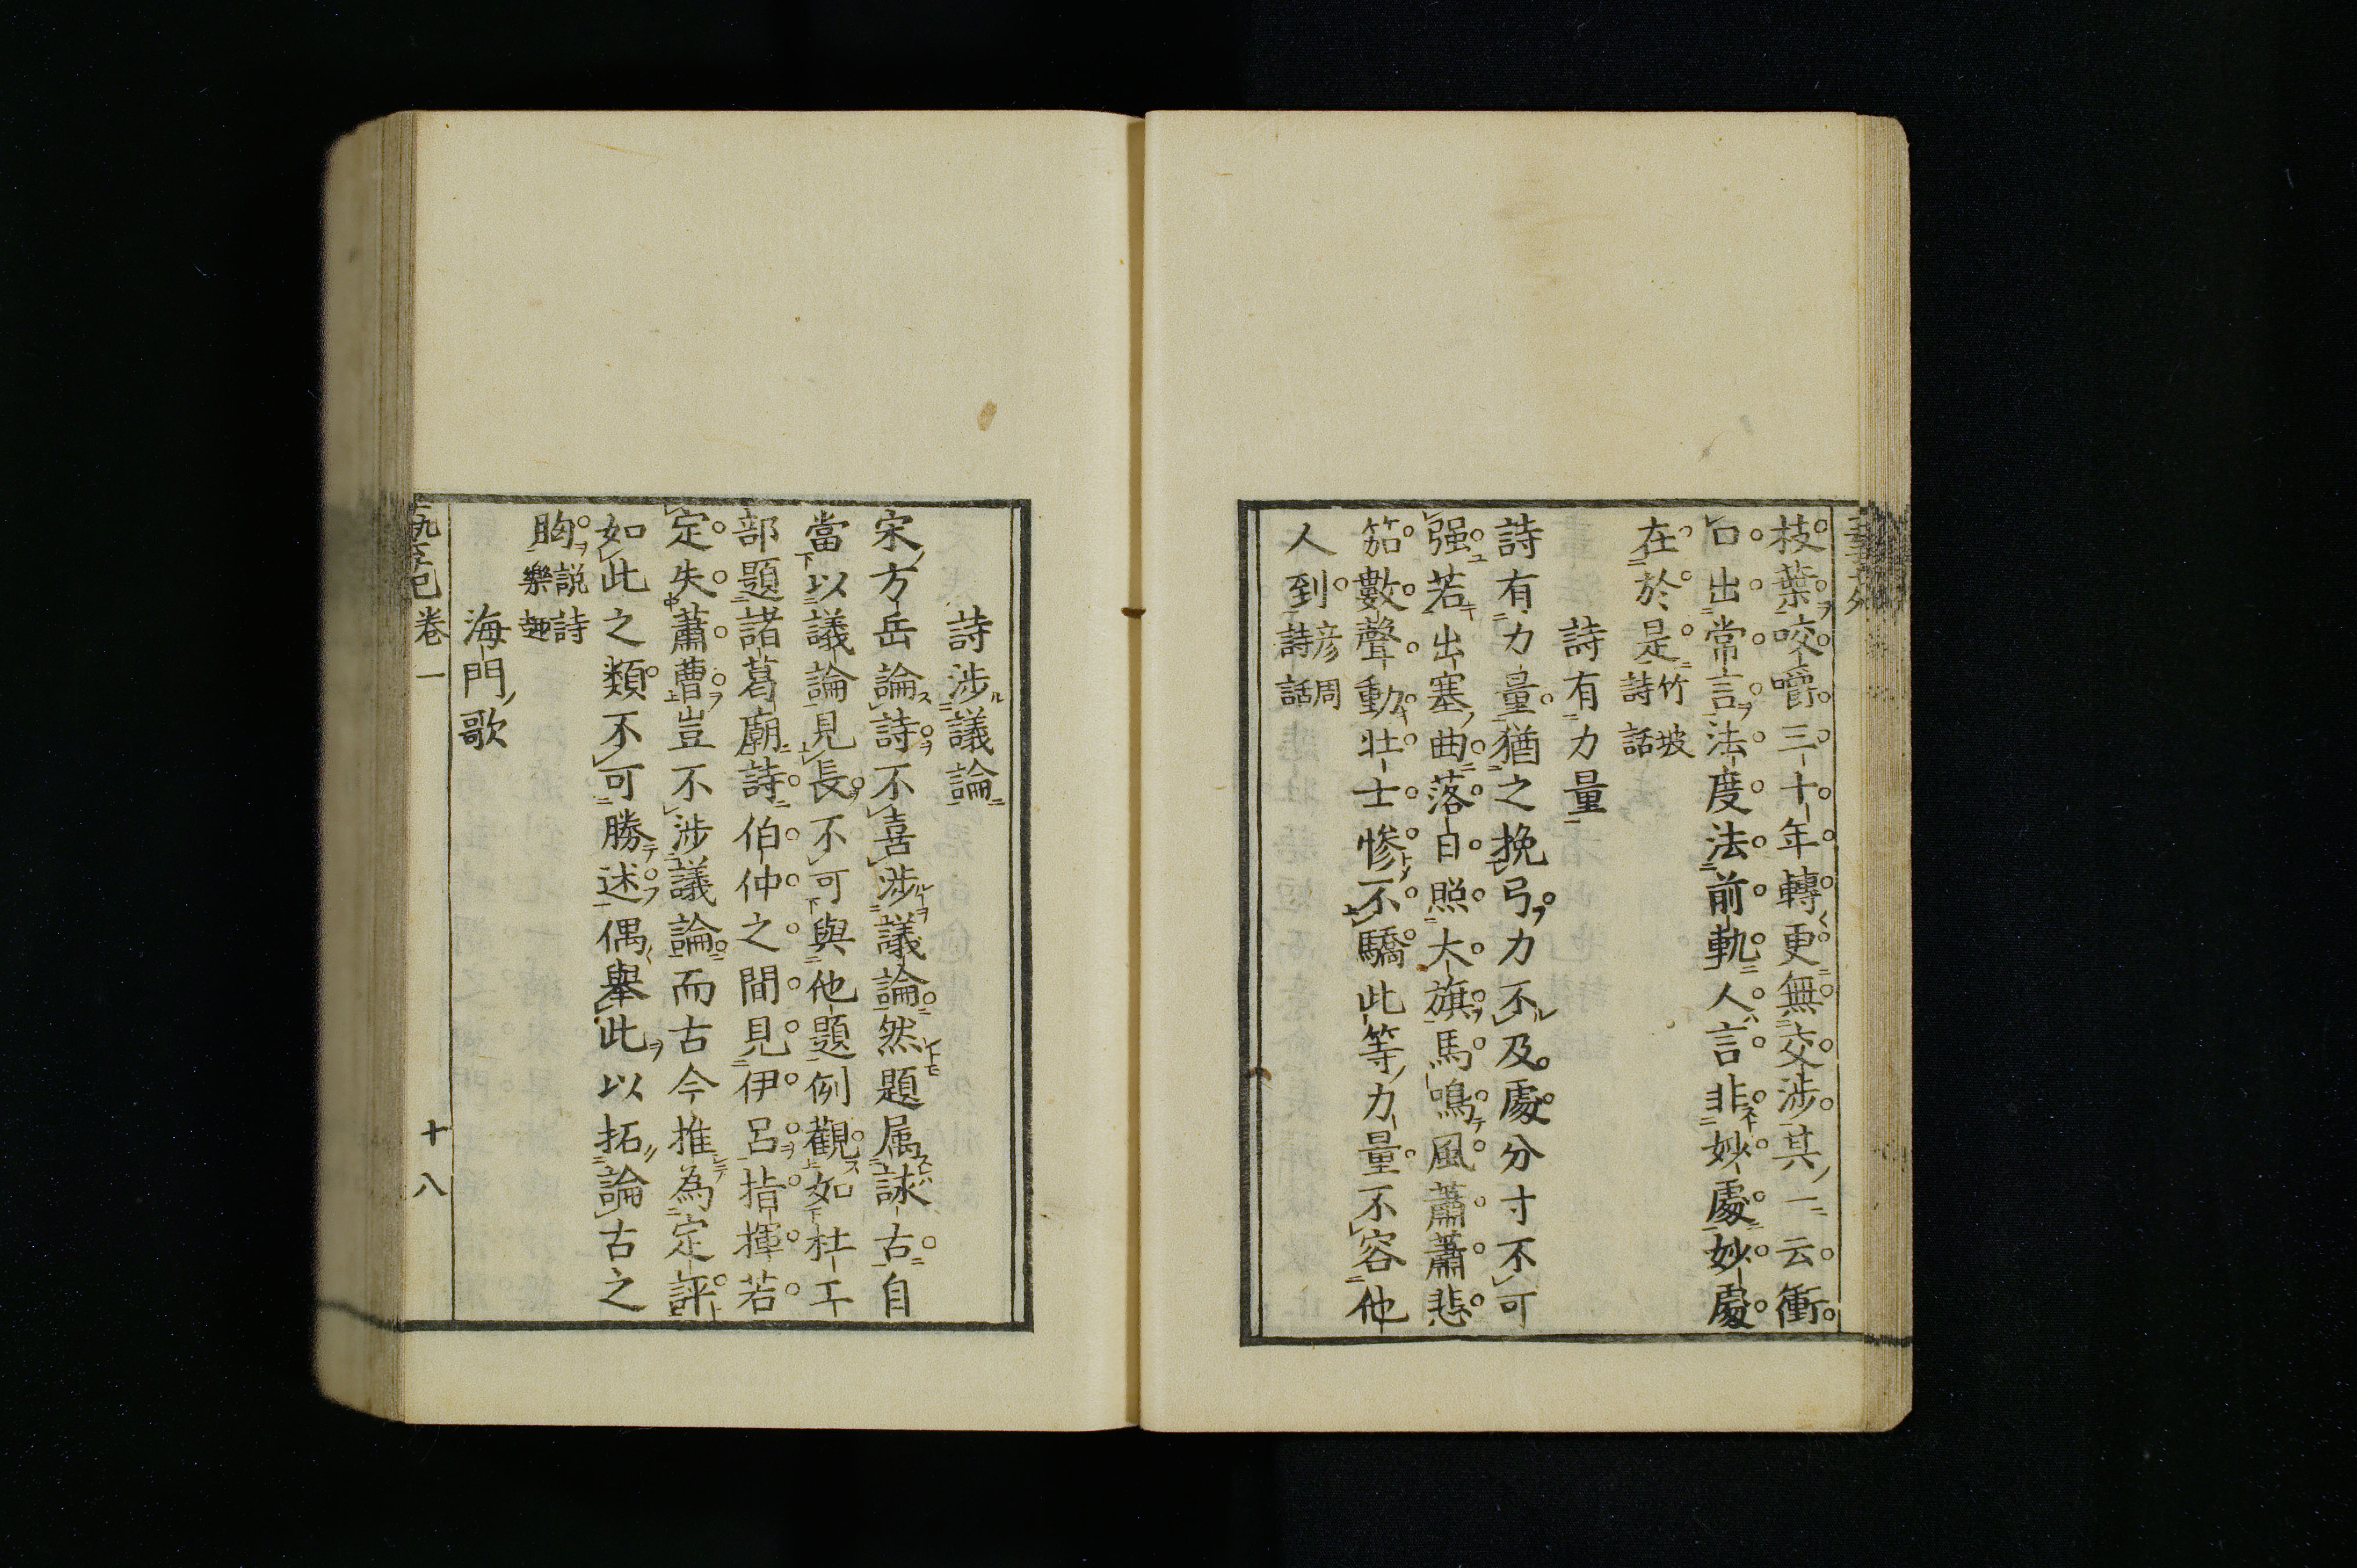 枝葉咬嚼三十年轉更無交涉其一云衝
口出常言法度法前軌人言非妙處妙處
在於是竹坡詩話
詩有力量
詩有力量猶之挽弓力不及處分寸不可
强若出塞曲落日照大旗馬鳴風蕭蕭悲
笳數聲動壯士慘不驕此等力量不容他
人到彦周詩話
詩涉議論
宋方岳論詩不喜涉議論然題属詠古自
當以議論見長不可與他題例觀如杜工
部題諸葛廟詩伯仲之間見伊呂指揮若
定失蕭曹豈不涉議論而古今推為定評
如此之類不可勝述偶舉此以拓論古之
胸説詩樂趣
海門歌
卷一
十八